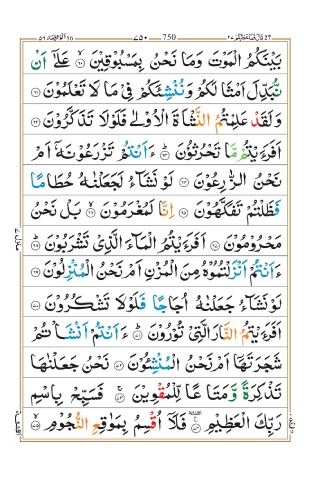 قال فما خطبكم ٢٧ 750 ٧٥٠ الواقعة ٥٦
بَيْنَكُمُ الْمَوْتَ وَمَا نَحْنُ بِمَسْبُوْقِيْنَ ۝٦٠ عَلٰۤى اَنْ
نُّبَدِّلَ اَمْثَالَكُمْ وَنُنْشِئَكُمْ فِيْ مَا لَا تَعْلَمُوْنَ ۝٦١
وَلَقَدْ عَلِمْتُمُ النَّشْاَةَ الْاُوْلٰى فَلَوْلَا تَذَكَّرُوْنَ ۝٦٢
اَفَرَءَيْتُمْ مَّا تَحْرُثُوْنَ ۝٦٣ ءَاَنْتُمْ تَزْرَعُوْنَهٗۤ اَمْ
نَحْنُ الزّٰرِعُوْنَ ۝٦٤ لَوْ نَشَآءُ لَجَعَلْنٰهُ حُطَامًا
فَظَلْتُمْ تَفَكَّهُوْنَ ۝٦٥ اِنَّا لَمُغْرَمُوْنَ ۝٦٦ بَلْ نَحْنُ
مَحْرُوْمُوْنَ ۝٦٧ اَفَرَءَيْتُمُ الْمَآءَ الَّذِيْ تَشْرَبُوْنَ ۝٦٨
ءَاَنْتُمْ اَنْزَلْتُمُوْهُ مِنَ الْمُزْنِ اَمْ نَحْنُ الْمُنْزِلُوْنَ ۝٦٩
لَوْ نَشَآءُ جَعَلْنٰهُ اُجَاجًا فَلَوْلَا تَشْكُرُوْنَ ۝٧٠
اَفَرَءَيْتُمُ النَّارَ الَّتِيْ تُوْرُوْنَ ۝٧١ ءَاَنْتُمْ اَنْشَاْتُمْ
شَجَرَتَهَاۤ اَمْ نَحْنُ الْمُنْشِئُوْنَ ۝٧٢ نَحْنُ جَعَلْنٰهَا
تَذْكِرَةً وَّمَتَاعًا لِّلْمُقْوِيْنَ ۝٧٣ فَسَبِّحْ بِاسْمِ
رَبِّكَ الْعَظِيْمِ ۝٧٤ فَلَاۤ اُقْسِمُ بِمَوٰقِعِ النُّجُوْمِ ۝٧٥